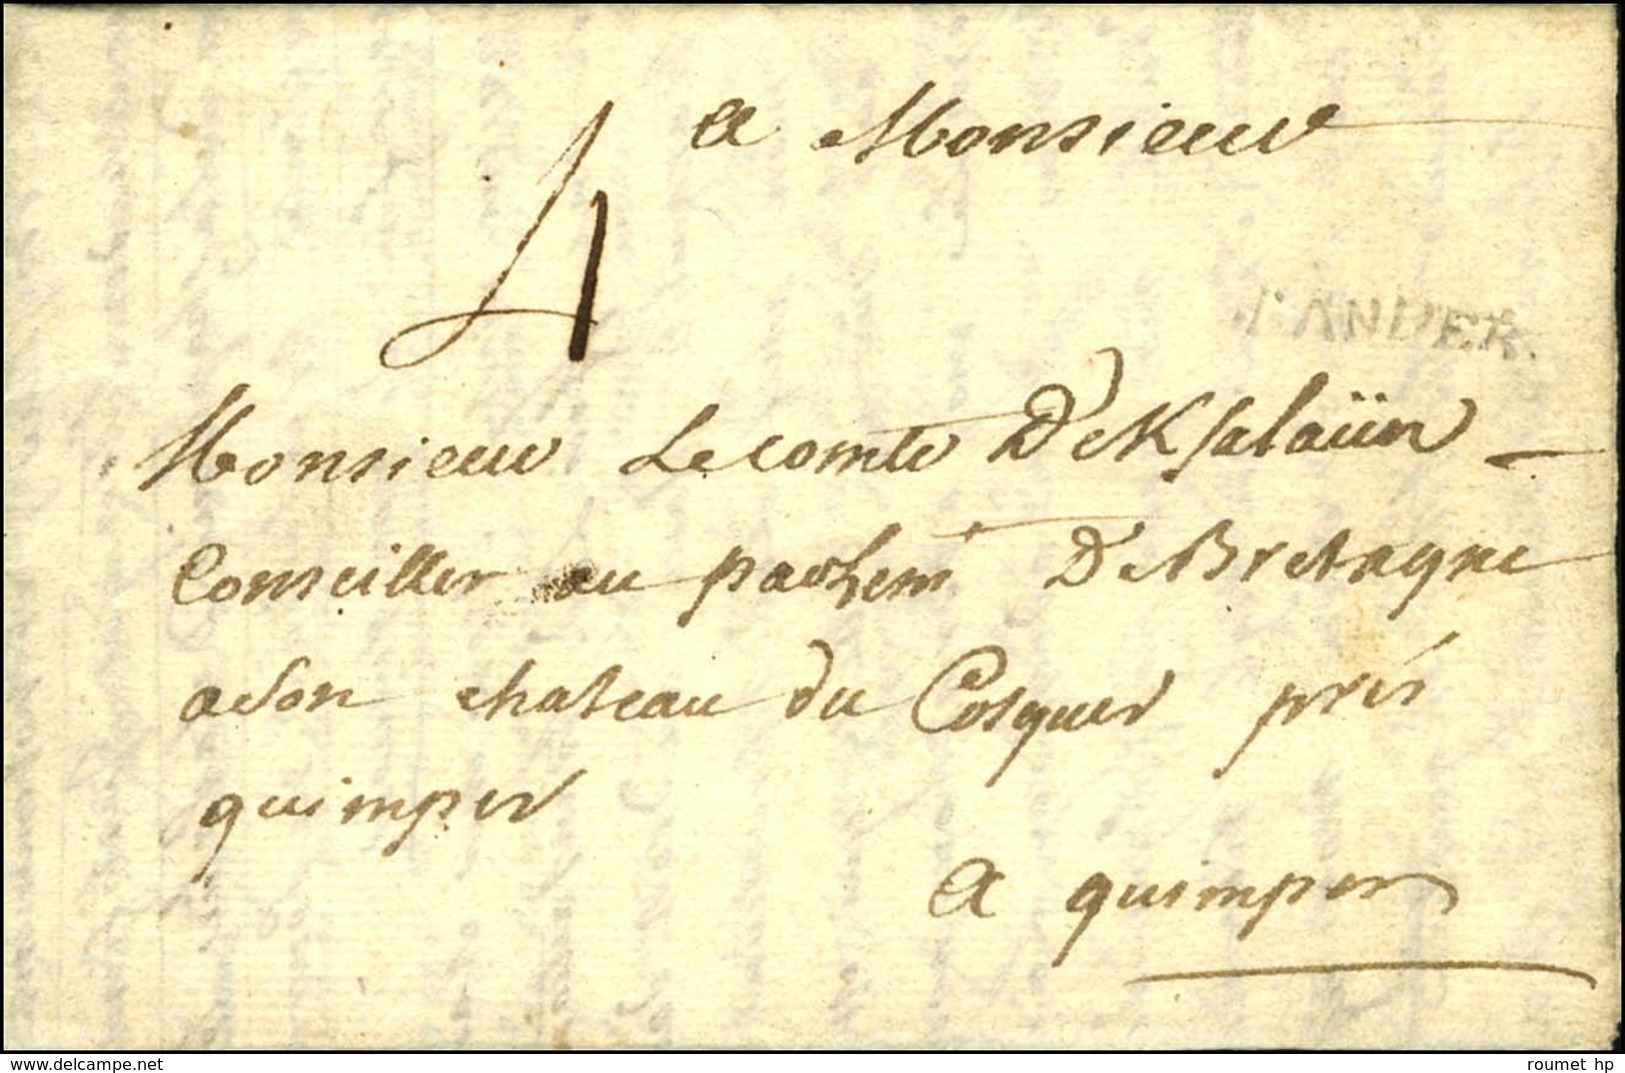 a Monsieur
4
LANDER.
Monsieur Le comte De Ksalaün
Conseiller au parlem De Bretagne
a son chateau du Cosquer pres
quimper
a quimper
www.delcampe.net
roumet hp